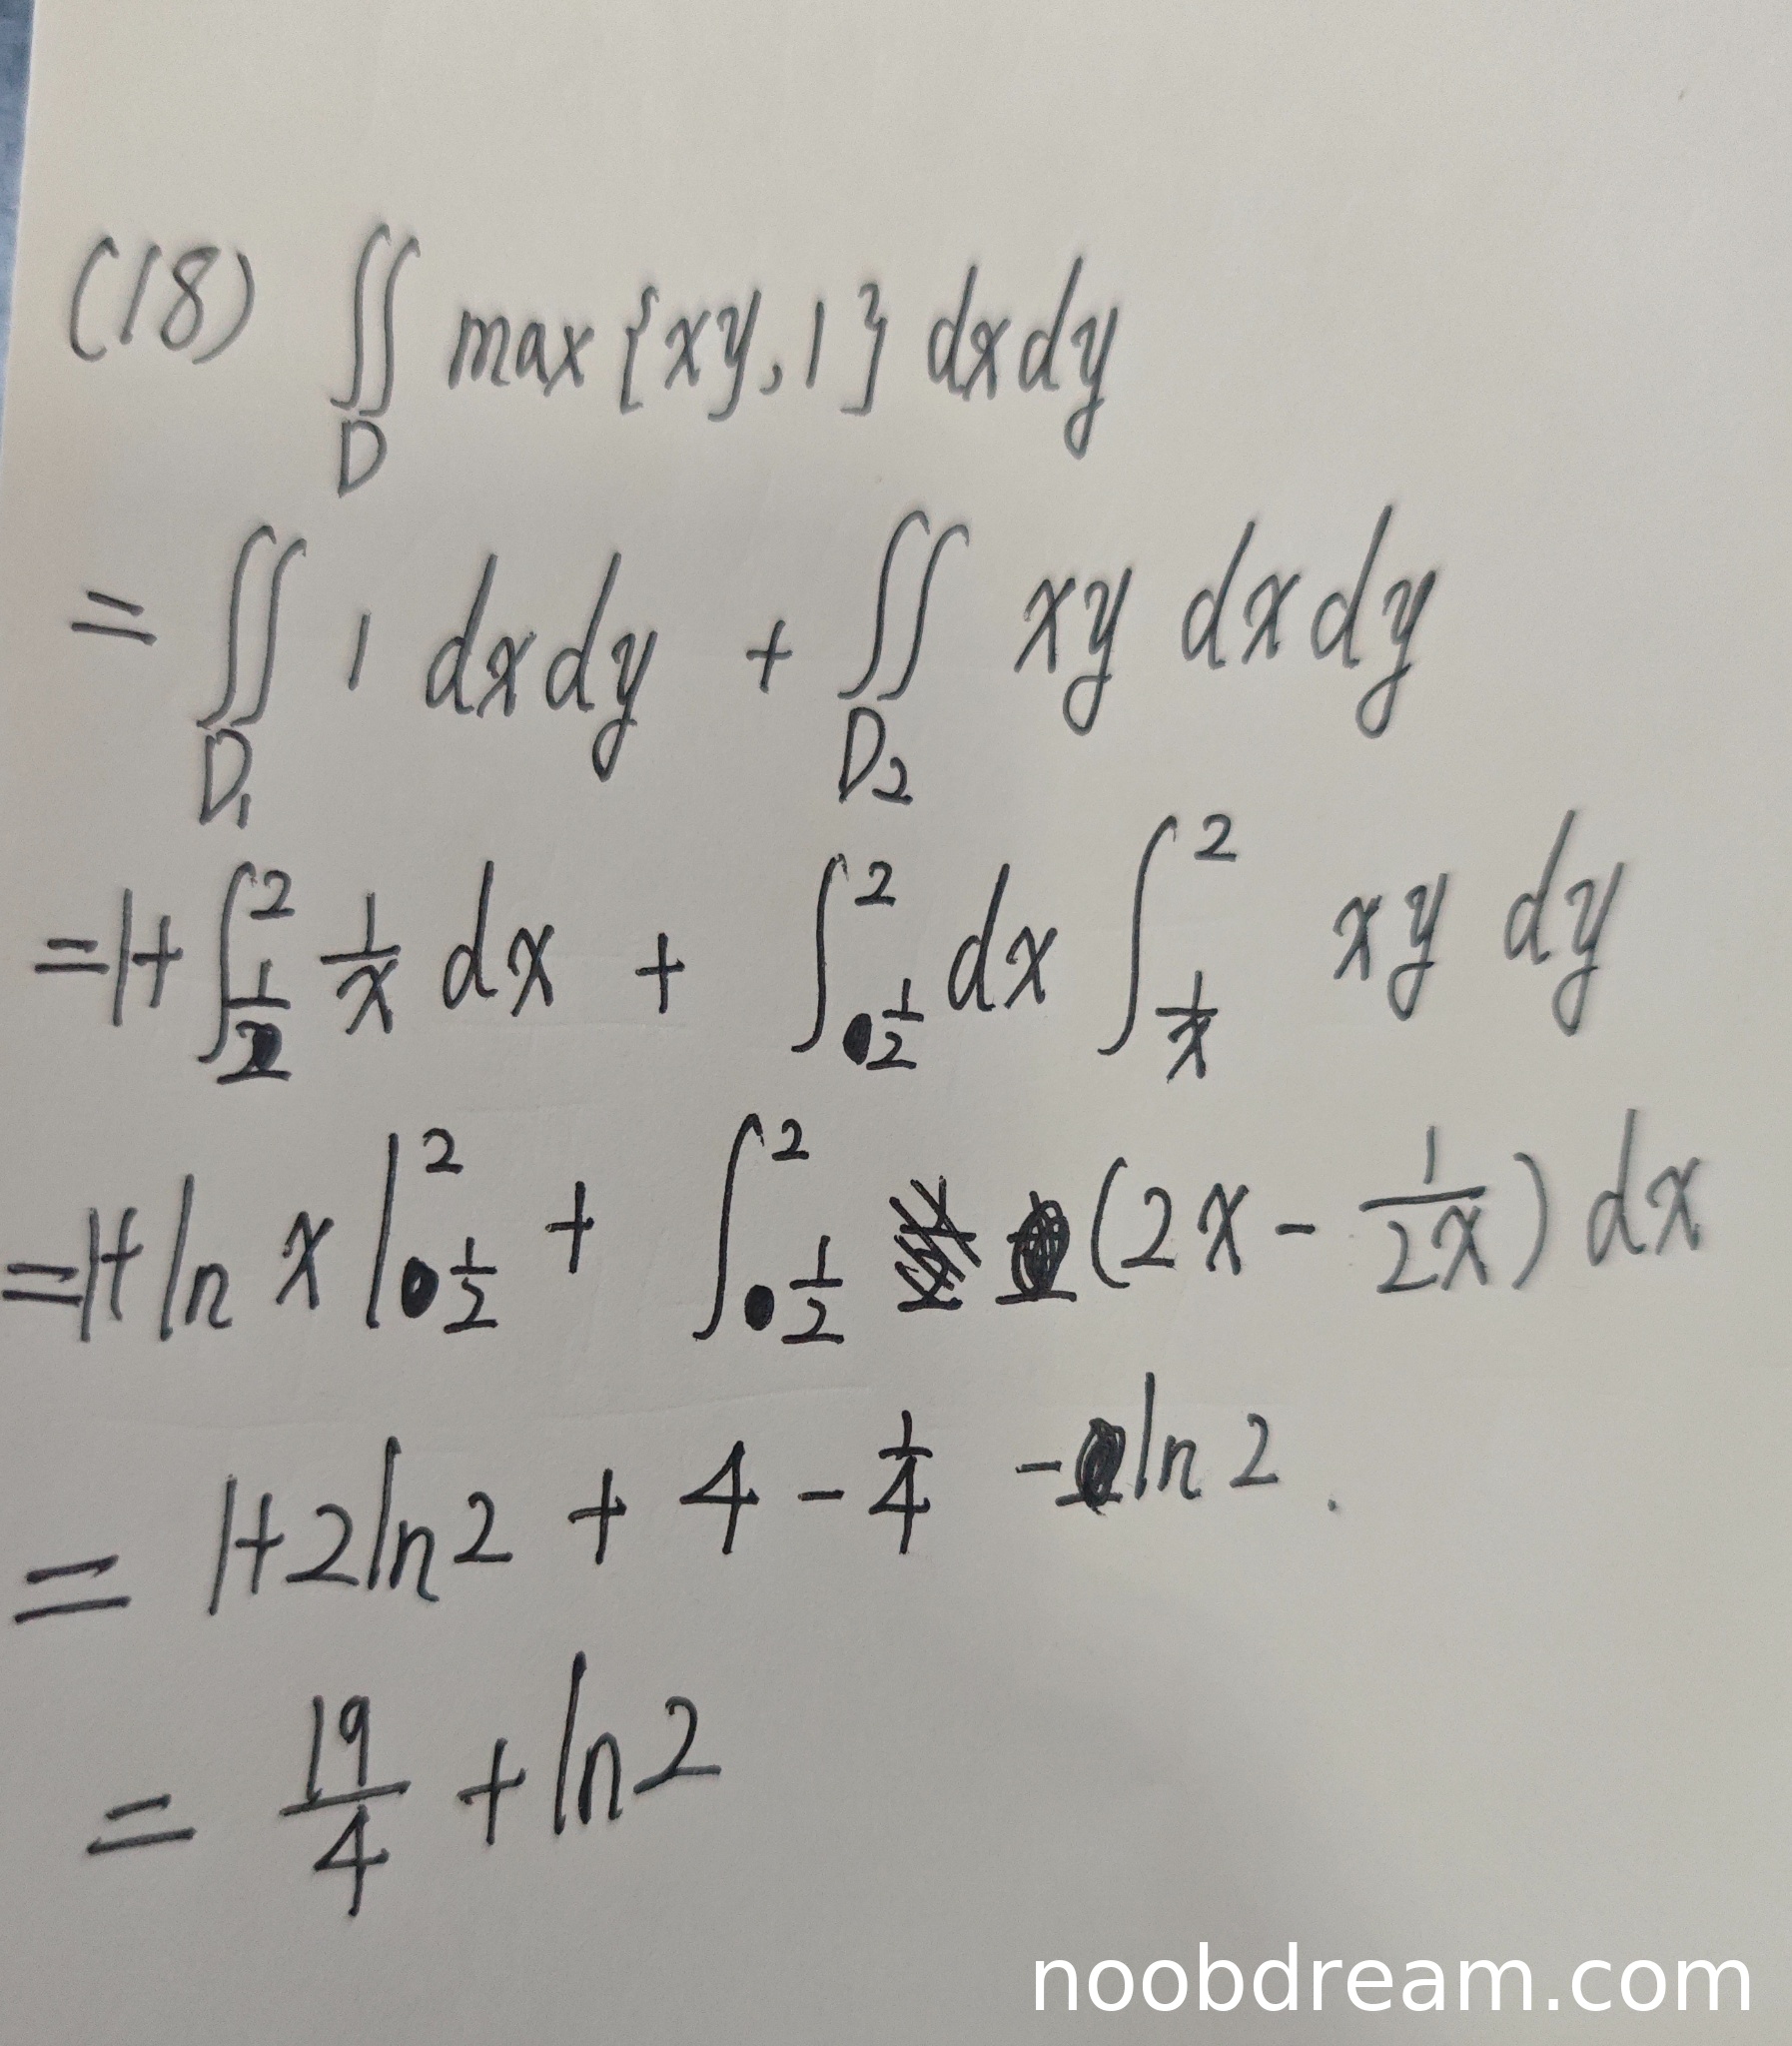 (18) ∬_D max{xy,1} dxdy
= ∬_{D₁} 1 dxdy + ∬_{D₂} xy dxdy
= 1+ ∫_{1/2}^{2} 1/x dx + ∫_{1/2}^{2} dx ∫_{1/x}^{2} xy dy
= 1+ ln x |_{1/2}^{2} + ∫_{1/2}^{2} (2x - 1/(2x)) dx
= 1+2ln2 + 4 - 1/4 - ln 2.
= 19/4 + ln2
noobdream.com